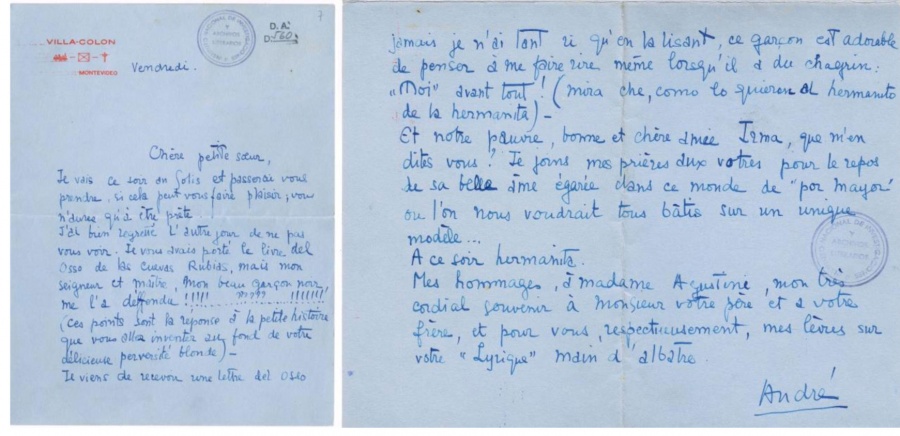 VILLA-COLON
MONTEVIDEO
D. A:
D. 560.
7
Vendredi.
Chère petite sœur,
Je vais ce soir au Solis et passerai vous
prendre, si cela peut vous faire plaisir; vous
n'aurez qu'à être prête.
J'ai bien regretté l'autre jour de ne pas
vous voir. Je vous avais porté le livre del
Osso de las Cuevas Rubias, mais mon
seigneur et maître, mon beau garçon noir
me l'a deffendu !!!!! ????? !!!!!!!
(ces points sont la réponse à la petite histoire
que vous allez inventer au fond de votre
délicieuse perversité blonde) –
Je viens de recevoir une lettre del Osso
jamais je n'ai tant ri qu'en la lisant, ce garçon est adorable
de penser à me faire rire même lorsqu'il a du chagrin:
"Moi" avant tout! (mira che, como lo quieren al hermanito
de la hermanita) –
Et notre pauvre, bonne et chère amée Irma, que m'en
dites vous? Je joins mes prières aux votres pour le repos
de sa belle âme égarée dans ce monde de "por mayor"
ou l'on nous voudrait tous bâtis sur un unique
modèle...
A ce soir hermanita.
Mes hommages, à madame Agustini, mon très
cordial souvenir à Monsieur votre père et a votre
frère, et pour vous, respectueusement, mes lèvres sur
votre "Lyrique" main d'albatre.
André